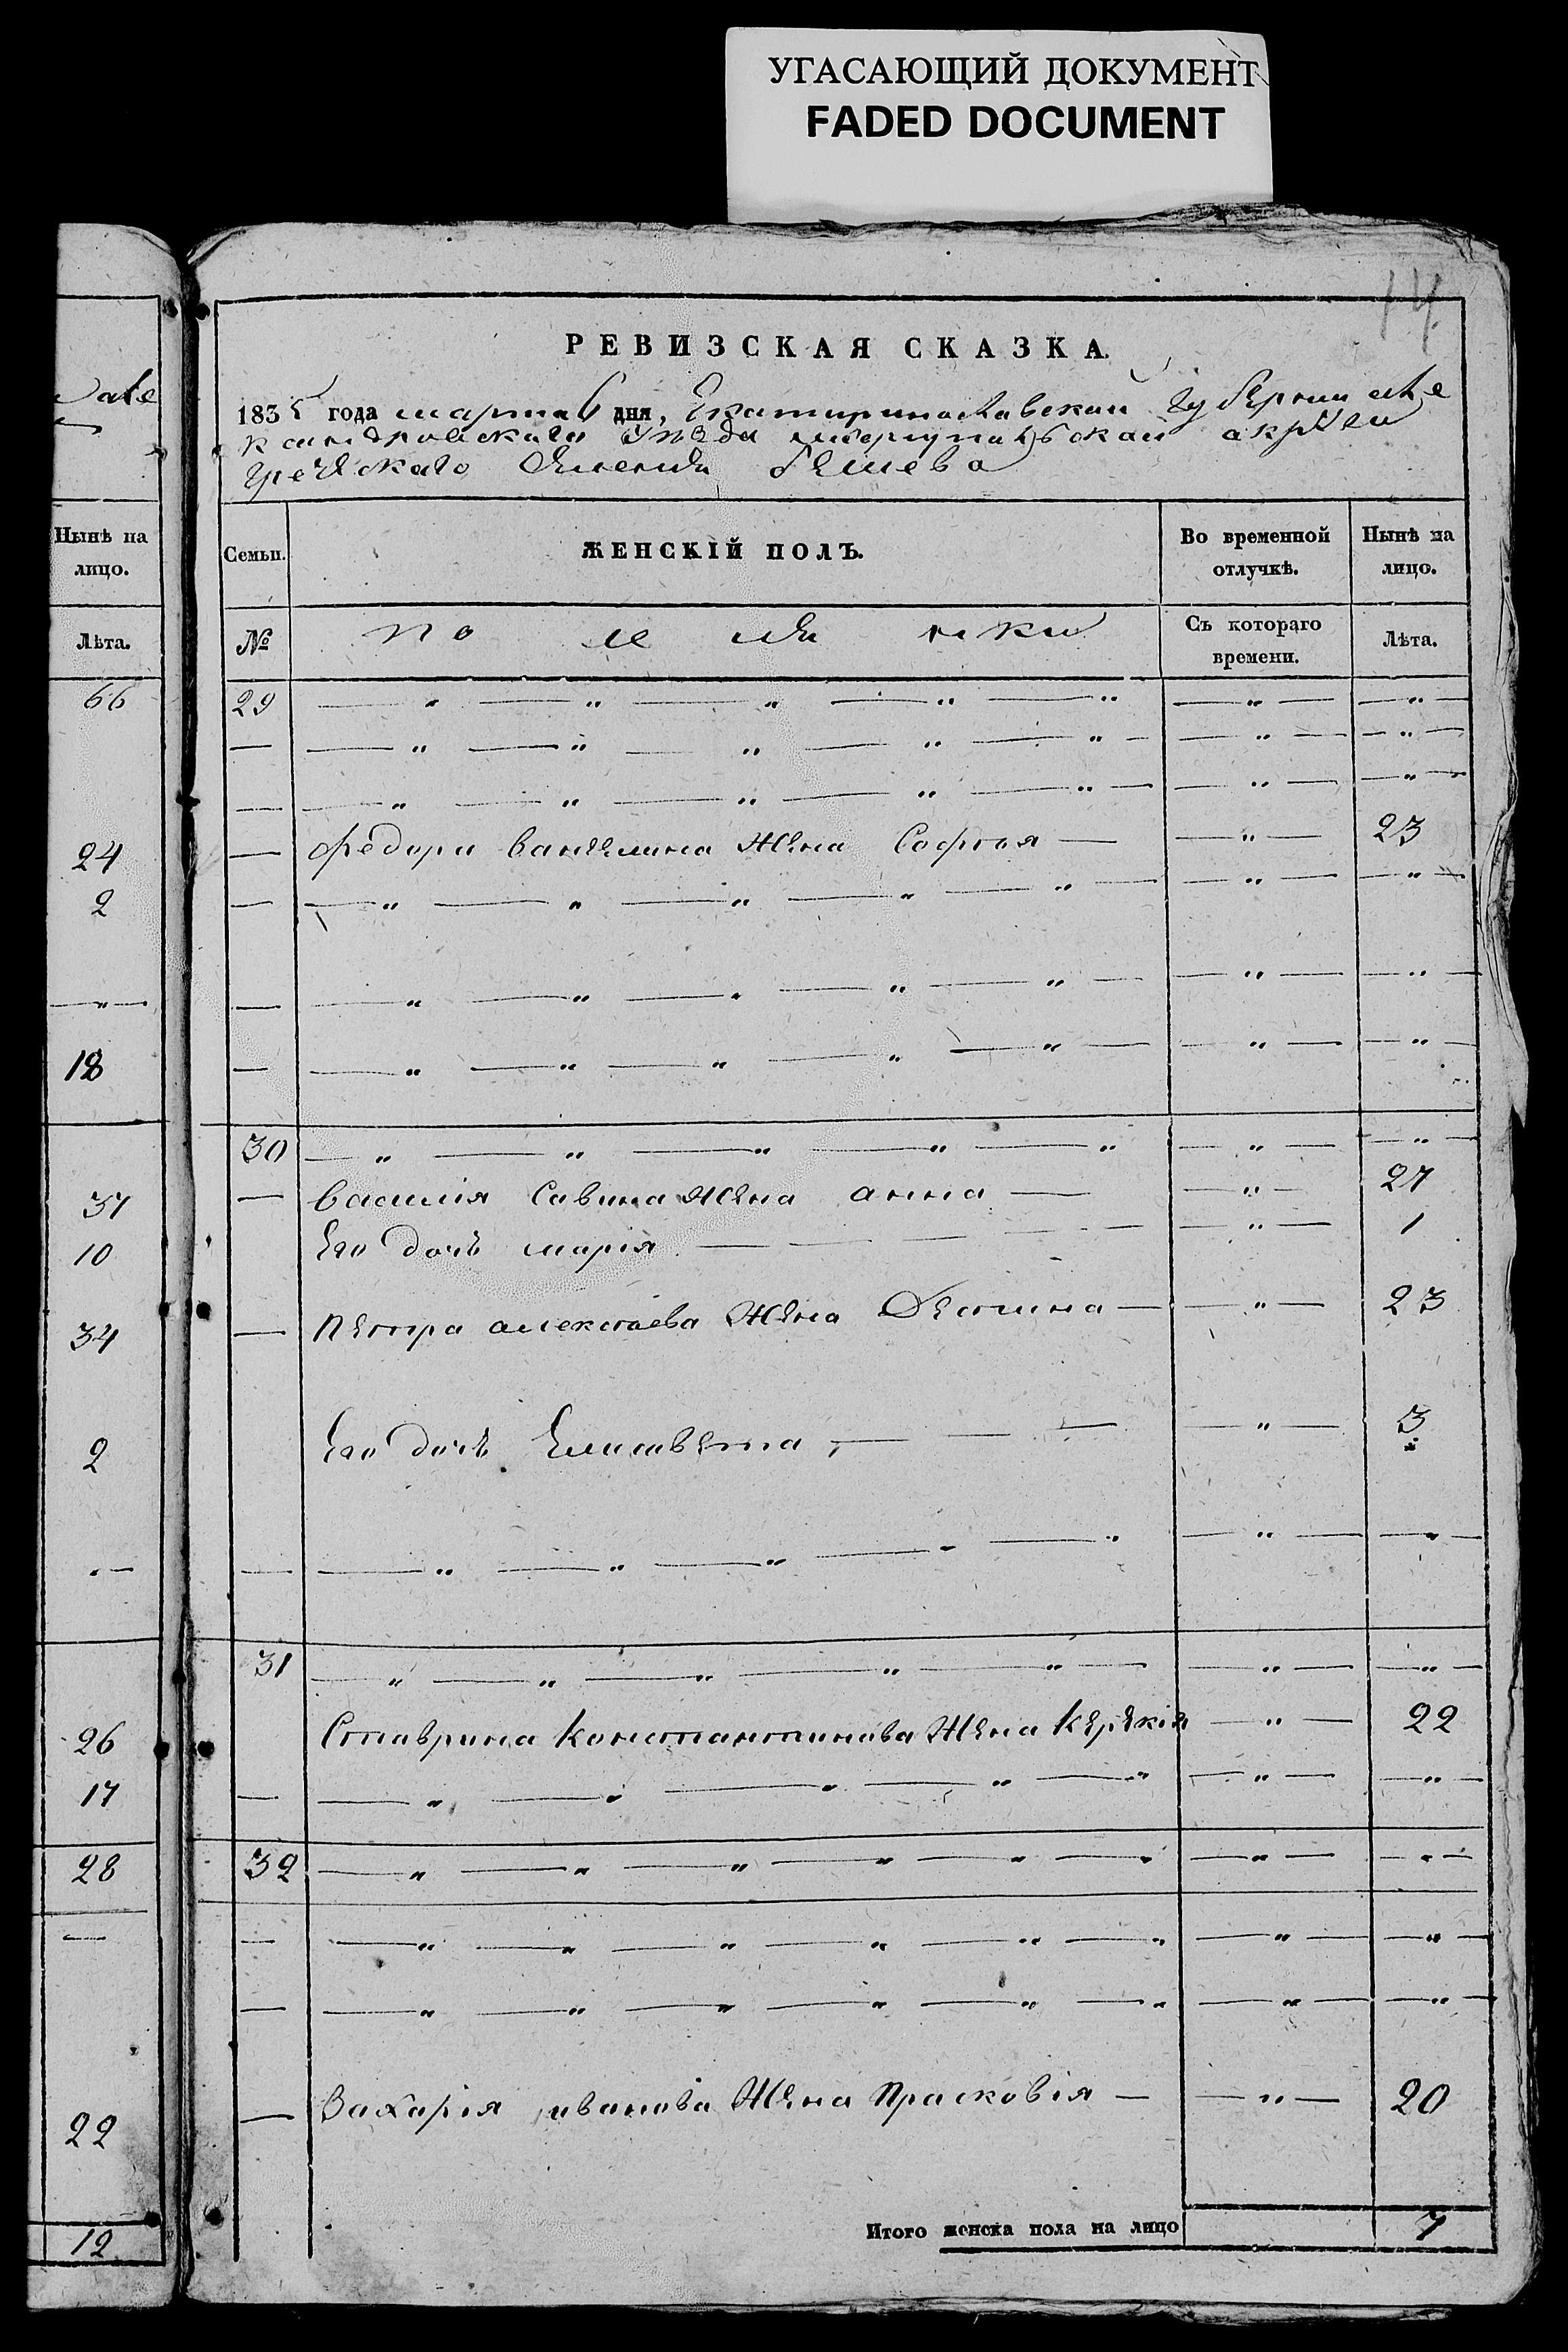 УГАСАЮЩИЙ ДОКУМЕНТ
FADED DOCUMENT
14
РЕВИЗСКАЯ СКАЗКА.
1835 года марта 6 дня, Екатиринославской губернии але
ксандровскаго уѣзда мариупальской
греческаго селения бешева
Нынѣ на лицо.
Лѣта.
66
24
2
— „ —
18
37
10
34
2
26
17
28
—
22
12
Семьи. ЖЕНСКІЙ ПОЛЪ. Во временной отлучкѣ. Нынѣ на лицо.
№ Съ котораго времени. Лѣта.
29 — „ — „ — „ — „ — „ — „ — — „ —
— — „ — „ — „ — „ — „ — — „ — — „ —
— — „ — „ — „ — „ — „ — — „ — — „ —
— Федора жена София — — „ — 23
— — „ — „ — „ — „ — „ — — „ — — „ —
— — „ — „ — „ — „ — „ — — „ — — „ —
— — „ — „ — „ — „ — „ — — „ — — „ —
30 — „ — „ — „ — „ — „ — „ — — „ —
— Василія Савина жена анна — — „ — 27
Его дочь марія — — — — — „ — 1
— Петра алексѣева жена — — „ — 23
Его дочь Елисавета — — — — „ — 3
— — „ — „ — „ — „ — „ — „ — — „ —
31 — „ — „ — „ — „ — „ — — „ — — „ —
Ставрина Константинова жена Керекія — „ — 22
— — „ — „ — „ — „ — „ — „ — — „ —
32 — „ — „ — „ — „ — „ — „ — „ — — „ —
— — „ — „ — „ — „ — „ — „ — „ — — „ —
— — „ — „ — „ — „ — „ — „ — „ — — „ —
— Захарія иванова жена Прасковія — — „ — 20
Итого женска пола на лицо 7